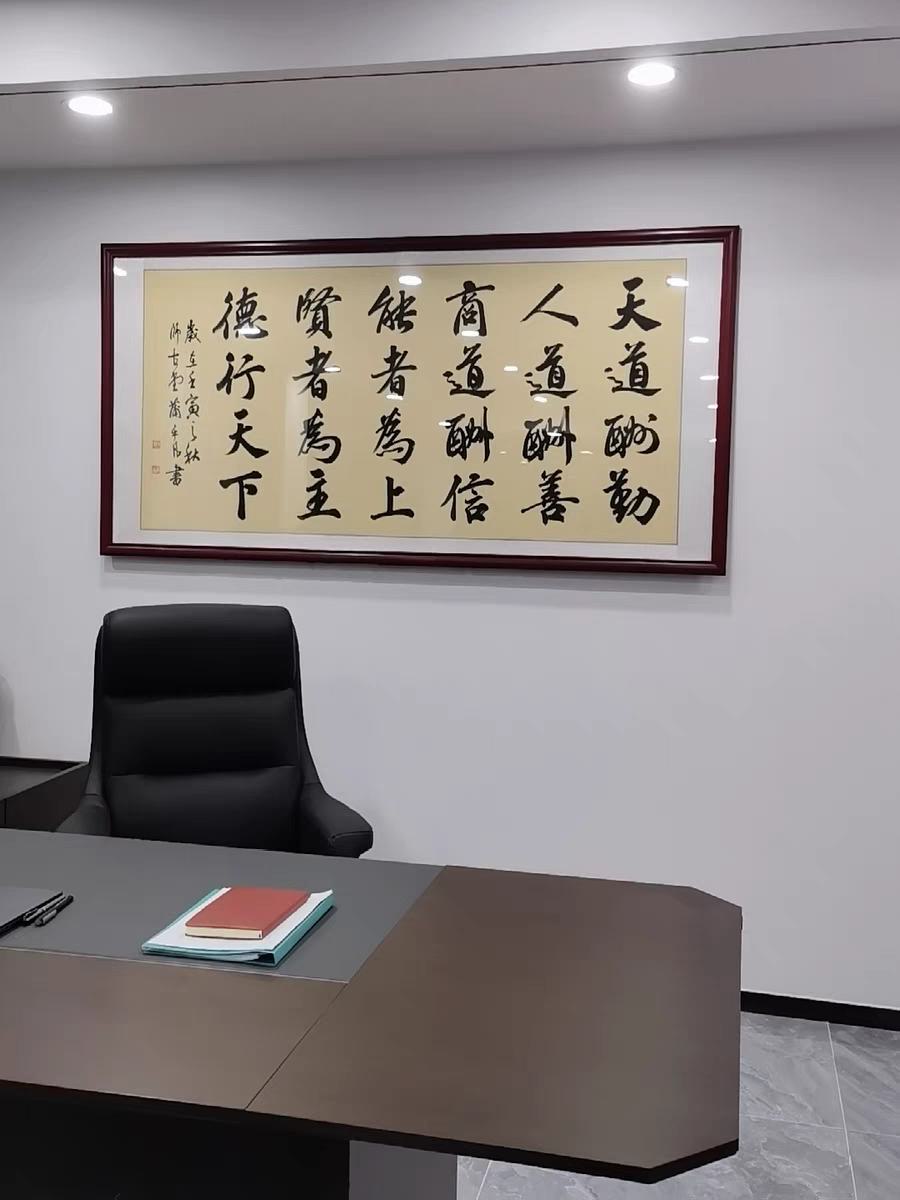 天道酬勤
人道酬善
商道酬信
能者為上
賢者為主
德行天下
歲在壬寅之秋
師古堂 書